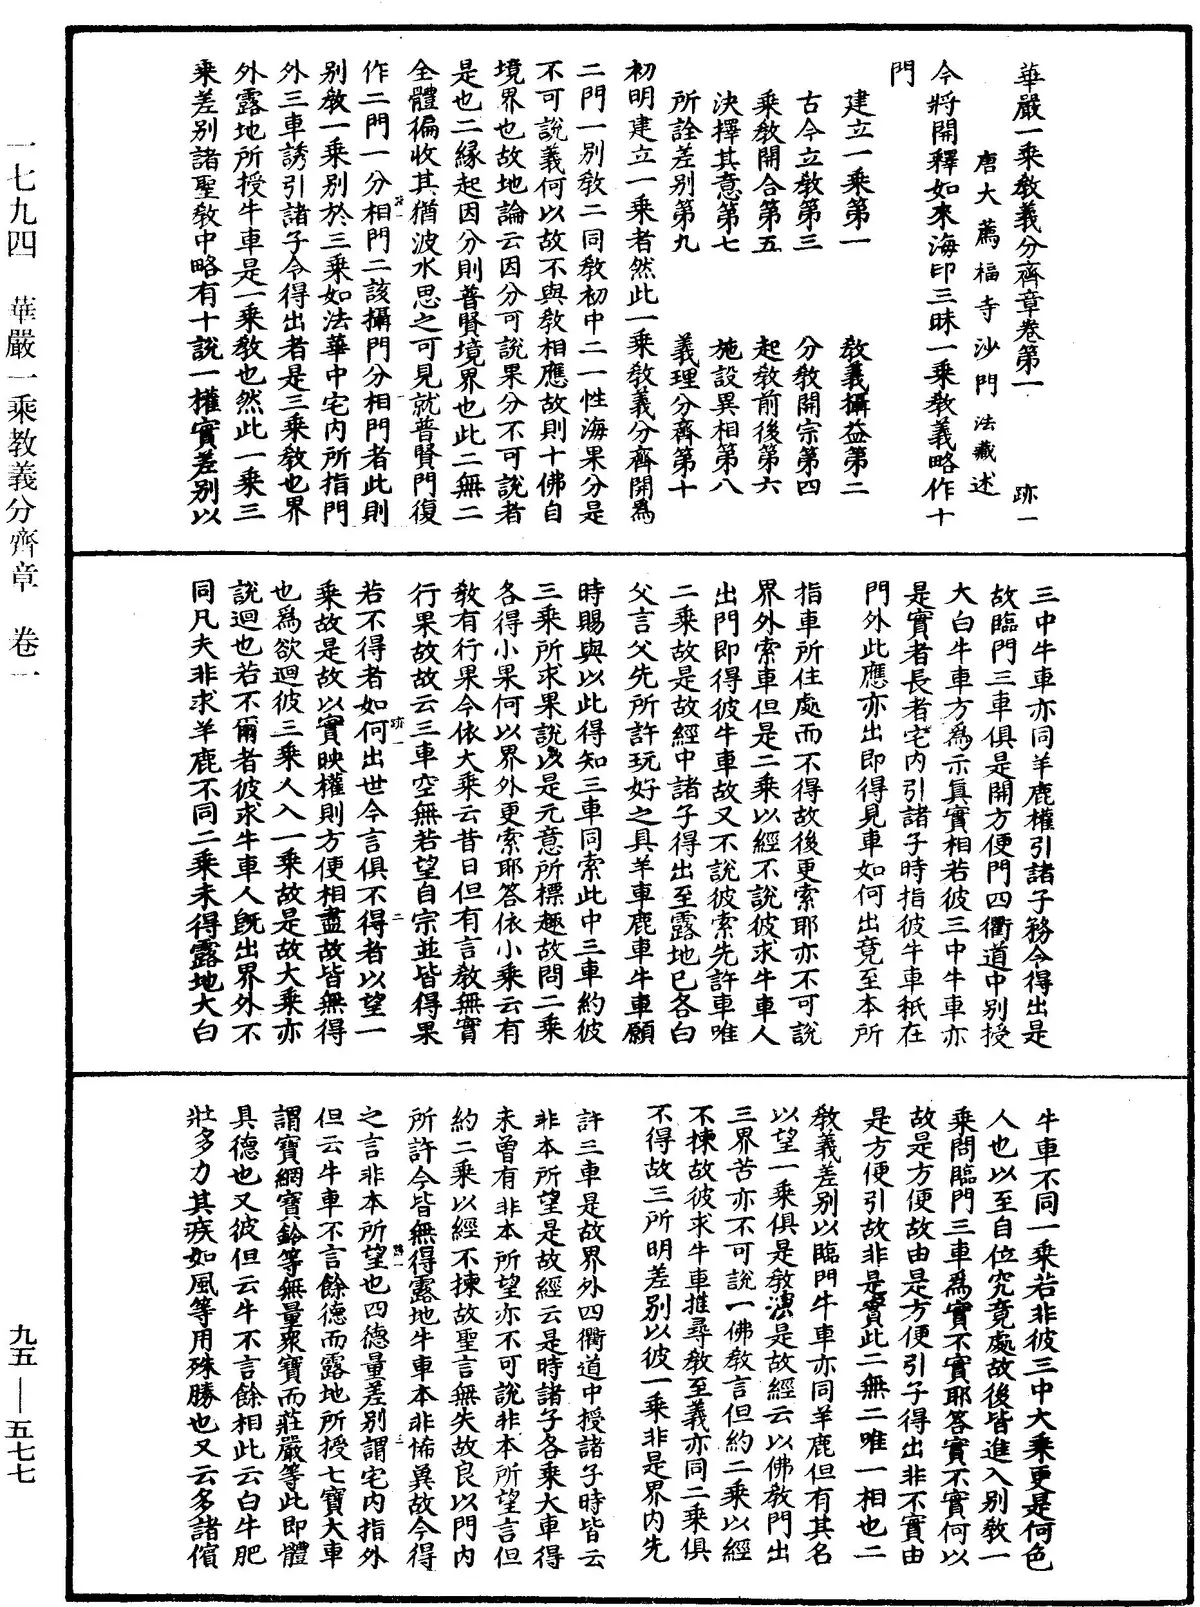 華嚴一乘教義分齊章卷第一　跡一
唐大薦福寺沙門法藏述
今將開釋如來海印三昧一乘教義略作十
門
建立一乘第一　教義攝益第二
古今立教第三　分教開宗第四
乘教開合第五　起教前後第六
決擇其意第七　施設異相第八
所詮差別第九　義理分齊第十
初明建立一乘者然此一乘教義分齊開為
二門一別教二同教初中二一性海果分是
不可說義何以故不與教相應故則十佛自
境界也故地論云因分可說果分不可說者
是也二緣起因分則普賢境界也此二無二
全體徧收其猶波水思之可見就普賢門復
作二門一分相門二該攝門分相門者此則
別教一乘別於三乘如法華中宅內所指門
外三車誘引諸子令得出者是三乘教也界
外露地所授牛車是一乘教也然此一乘三
乘差別諸聖教中略有十說一權實差別以
三中牛車亦同羊鹿權引諸子務令得出是
故臨門三車俱是開方便門四衢道中別授
大白牛車方為示真實相若彼三中牛車亦
是實者長者宅內引諸子時指彼牛車秖在
門外此應亦出即得見車如何出竟至本所
指車所住處而不得故後更索耶亦不可說
界外索車但是二乘以經不說彼求牛車人
出門即得彼牛車故又不說彼索先許車唯
二乘故是故經中諸子得出至露地已各白
父言父先所許玩好之具羊車鹿車牛車願
時賜與以此得知三車同索此中三車約彼
三乘所求果說以是元意所標趣故問二乘
各得小果何以界外更索耶答依小乘云有
教有行果今依大乘云昔日但有言教無實
行果故故云三車空無若望自宗並皆得果
若不得者如何出世今言俱不得者以望一
乘故是故以實映權則方便相盡故皆無得
也為欲迴彼三乘人入一乘故是故大乘亦
說迴也若不爾者彼求牛車人旣出界外不
同凡夫非求羊鹿不同二乘未得露地大白
牛車不同一乘若非彼三中大乘更是何色
人也以至自位究竟處故後皆進入別教一
乘問臨門三車為實不實耶答實不實何以
故是方便故由是方便引子得出非不實由
是方便引故非是實此二無二唯一相也二
教義差別以臨門牛車亦同羊鹿但有其名
以望一乘俱是教演是故經云以佛教門出
三界苦亦不可說一佛教言但約二乘以經
不揀故彼求牛車推尋教至義亦同二乘俱
不得故三所明差別以彼一乘非是界內先
許三車是故界外四衢道中授諸子時皆云
非本所望是故經云是時諸子各乘大車得
未曾有非本所望亦不可說非本所望言但
約二乘以經不揀故聖言無失故良以門內
所許今皆無得露地牛車本非悕冀故今得
之言非本所望也四德量差別謂宅內指外
但云牛車不言餘德而露地所授七寶大車
謂寶網寶鈴等無量眾寶而莊嚴等此即體
具德也又彼但云牛不言餘相此云白牛肥
壯多力其疾如風等用殊勝也又云多諸儐
一七九四　華嚴一乘教義分齊章　卷一
九五—五七七